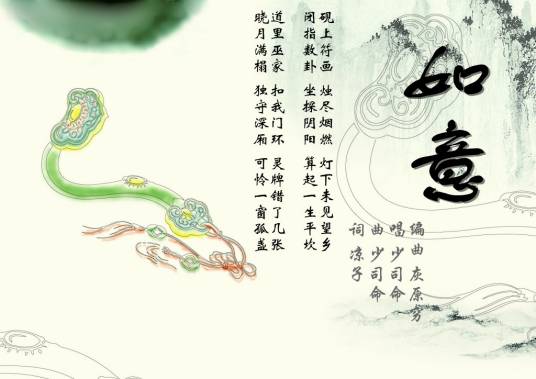 如意
编曲 灰原穷
唱 少司命
曲 少司命
词 凉子
砚上符画 烛尽烟燃 灯下未见望乡
闭指数卦 坐探阴阳 算起一生平坎
道里巫家 扣我门环 灵牌错了几张
晓月满榻 独守深厢 可怜一窗孤盏